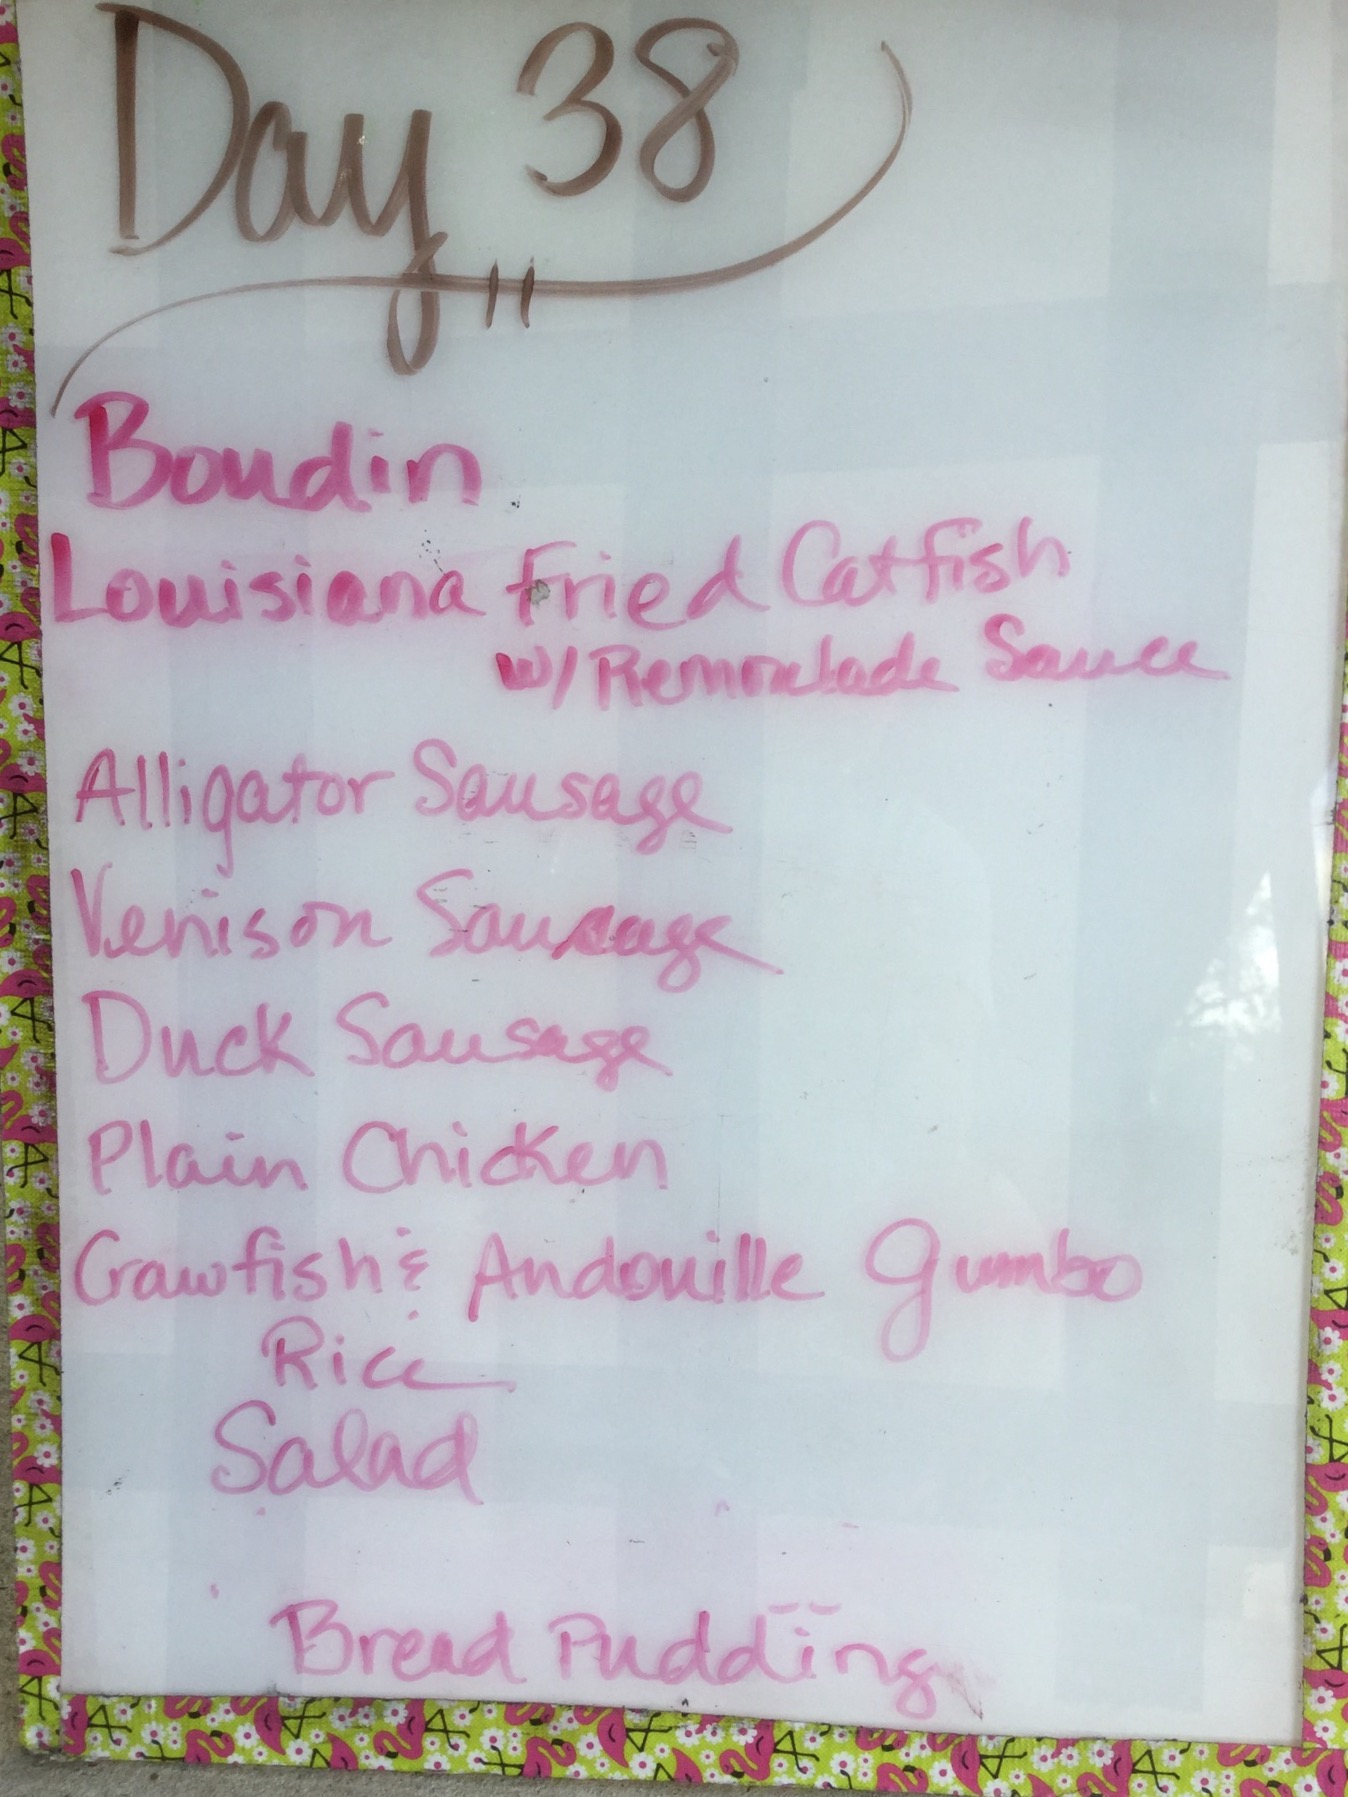 Day 38
Boudin
Louisiana Fried Catfish
w/ Remoulade Sauce
Alligator Sausage
Venison Sausage
Duck Sausage
Plain Chicken
Crawfish & Andouille Gumbo
Rice
Salad
Bread Pudding